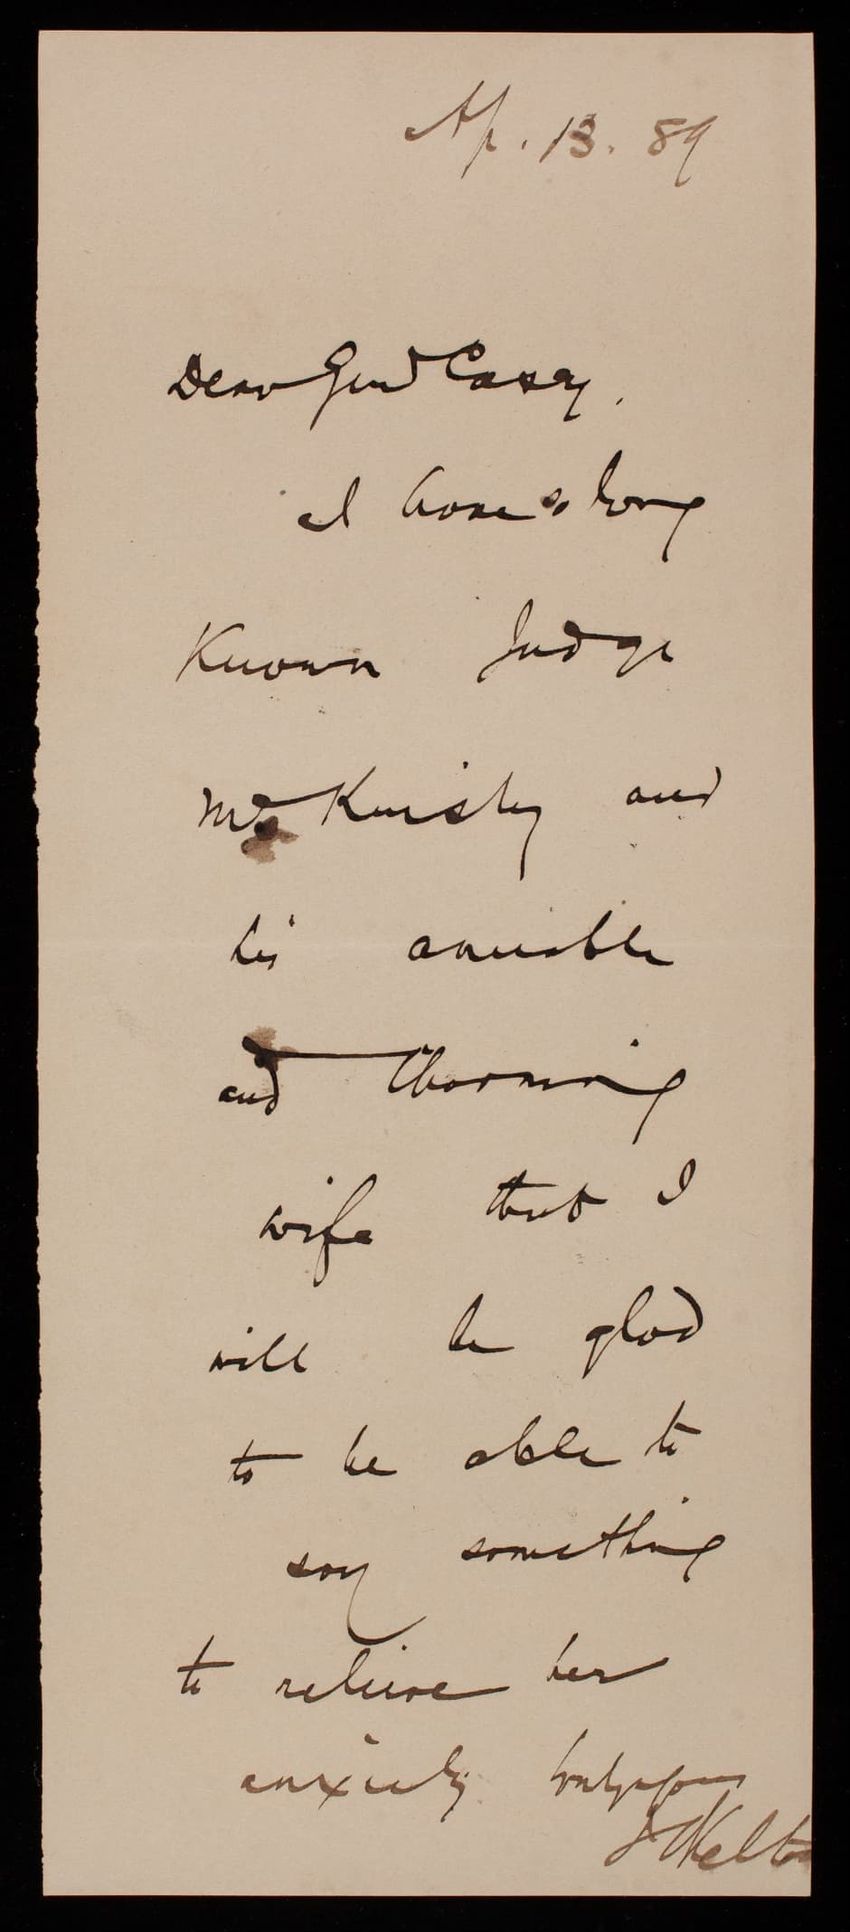 Ap. 13. 89
Dear Genl Casey.
I have so long
Known Judge
and
his amiable
and charming
wife that I
will be glad
to be able to
say something
to relieve her
anxiety. Truly yours
J C Kelton